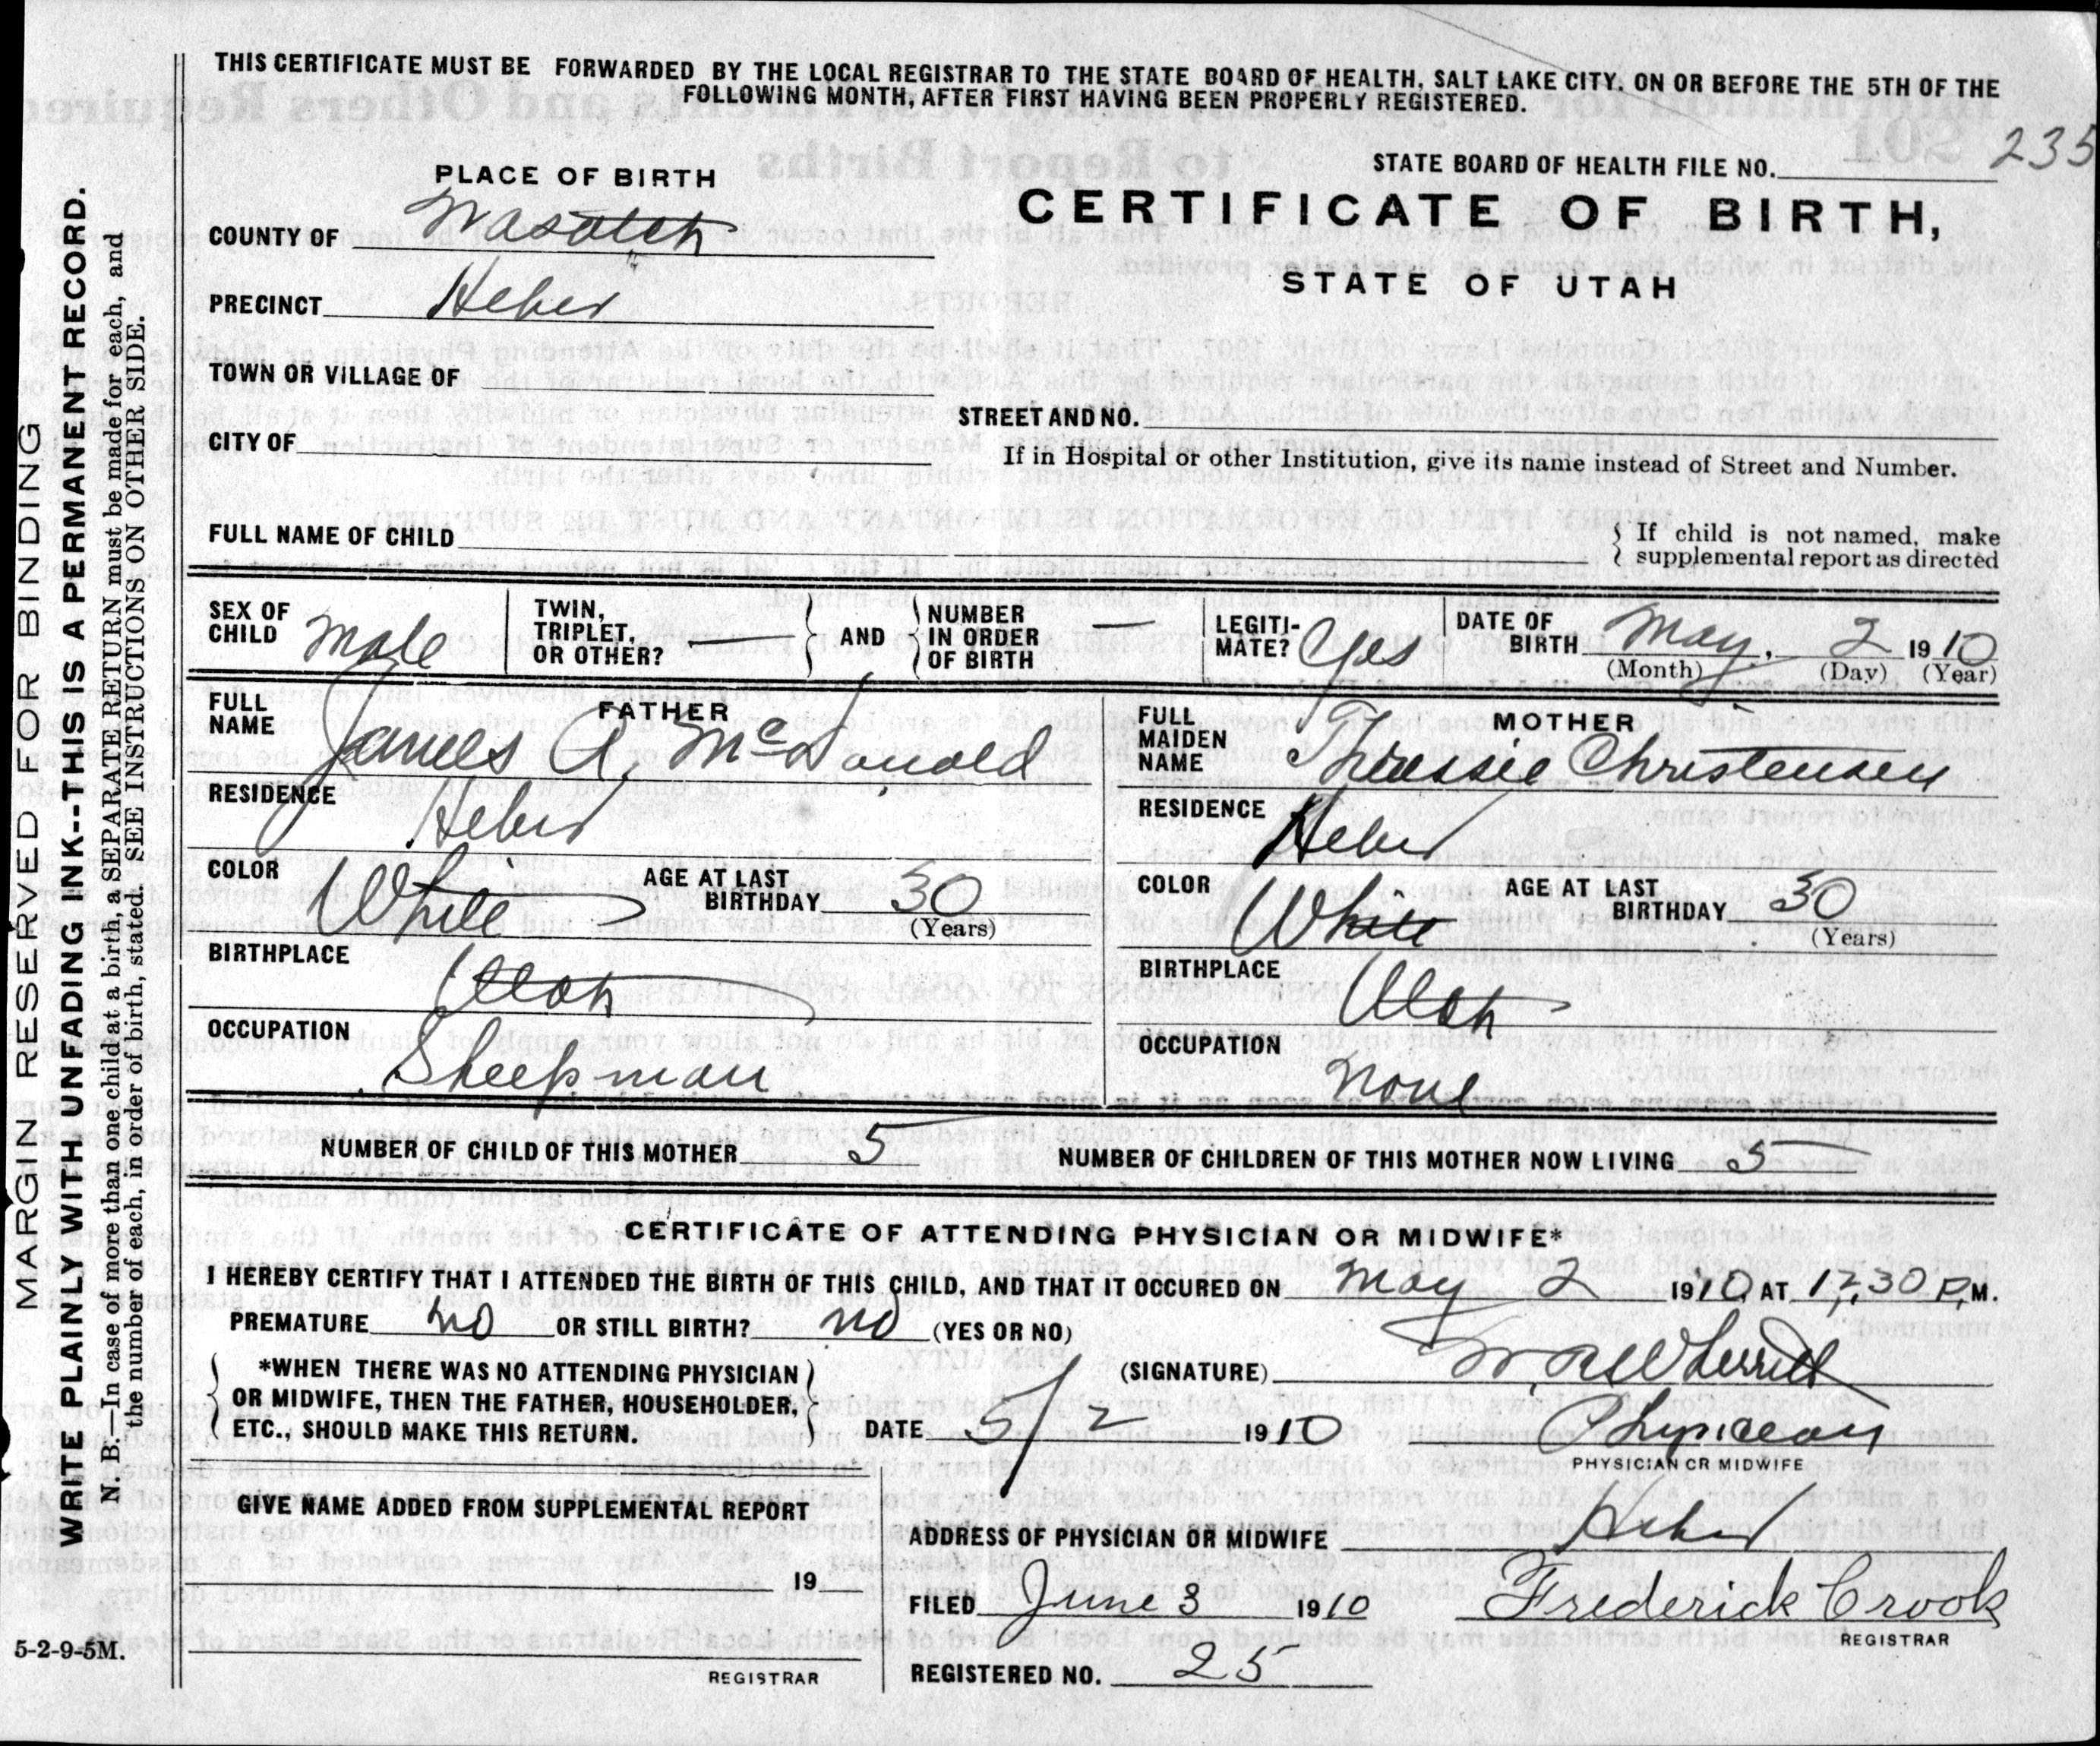 THIS CERTIFICATE MUST BE FORWARDED BY THE LOCAL REGISTRAR TO THE STATE BOARD OF HEALTH, SALT LAKE CITY, ON OR BEFORE THE 5TH OF THE
FOLLOWING MONTH, AFTER FIRST HAVING BEEN PROPERLY REGISTERED.
PLACE OF BIRTH
STATE BOARD OF HEALTH FILE NO. 235
CERTIFICATE OF BIRTH,
STATE OF UTAH
COUNTY OF Wasatch
PRECINCT Heber
TOWN OR VILLAGE OF
STREET AND NO.
CITY OF
If in Hospital or other Institution, give its name instead of Street and Number.
FULL NAME OF CHILD
If child is not named, make
supplemental report as directed
SEX OF CHILD Male
TWIN, TRIPLET, OR OTHER? —
AND
NUMBER IN ORDER OF BIRTH —
LEGITI-MATE? Yes
DATE OF BIRTH May, 2 1910
(Month) (Day) (Year)
FATHER
FULL NAME James A. McDonald
RESIDENCE Heber
COLOR White
AGE AT LAST BIRTHDAY 30
(Years)
BIRTHPLACE Utah
OCCUPATION Sheepman
MOTHER
FULL MAIDEN NAME Christensen
RESIDENCE Heber
COLOR White
AGE AT LAST BIRTHDAY 30
(Years)
BIRTHPLACE Utah
OCCUPATION None
NUMBER OF CHILD OF THIS MOTHER 5
NUMBER OF CHILDREN OF THIS MOTHER NOW LIVING 5
CERTIFICATE OF ATTENDING PHYSICIAN OR MIDWIFE*
I HEREBY CERTIFY THAT I ATTENDED THE BIRTH OF THIS CHILD, AND THAT IT OCCURED ON May 2 1910, AT 12,30 P.M.
PREMATURE no OR STILL BIRTH? no (YES OR NO)
*WHEN THERE WAS NO ATTENDING PHYSICIAN
OR MIDWIFE, THEN THE FATHER, HOUSEHOLDER,
ETC., SHOULD MAKE THIS RETURN.
(SIGNATURE)
DATE 5/2 1910
Physician
PHYSICIAN OR MIDWIFE
GIVE NAME ADDED FROM SUPPLEMENTAL REPORT
19
REGISTRAR
ADDRESS OF PHYSICIAN OR MIDWIFE Heber
FILED June 3 1910 Frederick Crook
REGISTRAR
REGISTERED NO. 25
5-2-9-5M.
MARGIN RESERVED FOR BINDING
WRITE PLAINLY WITH UNFADING INK--THIS IS A PERMANENT RECORD.
N. B.—In case of more than one child at a birth, a SEPARATE RETURN must be made for each, and
the number of each, in order of birth, stated. SEE INSTRUCTIONS ON OTHER SIDE.